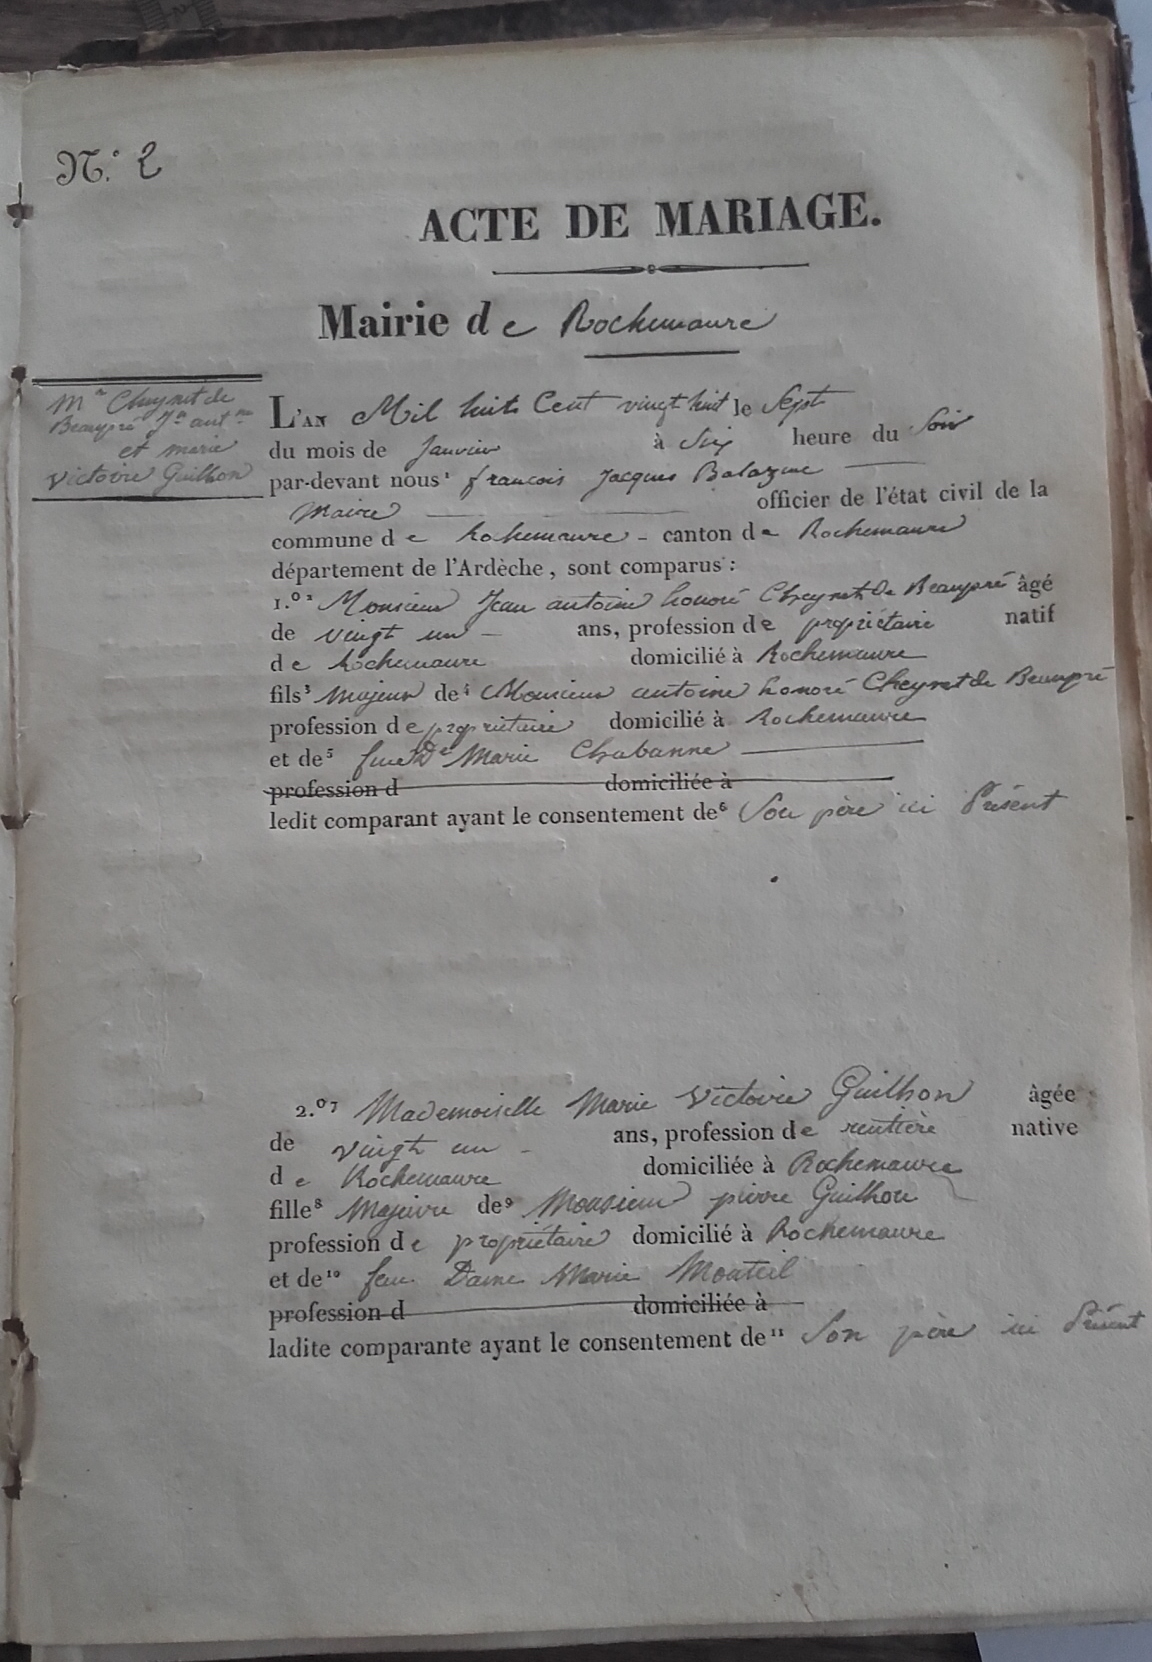 N.° 2
ACTE DE MARIAGE.
Mairie de Rochemaure
Mr Cheynet de
Beaupré Jn antne
et marie
victoire Guilhon
L'AN Mil huit Cent vingt huit le Sept
du mois de Janvier à Six heure du Soir
par-devant nous¹ françois Jacques Balazuc
Maire officier de l'état civil de la
commune de Rochemaure - canton de Rochemaure
département de l'Ardèche, sont comparus :
1.°² Monsieur Jean antoine honoré Cheynet de Beaupré âgé
de vingt un - ans, profession de propriétaire natif
de Rochemaure domicilié à Rochemaure
fils³ majeur de⁴ Monsieur antoine honoré Cheynet de Beaupré
profession de propriétaire domicilié à Rochemaure
et de⁵ feue De Marie Chabanne
profession d domiciliée à
ledit comparant ayant le consentement de⁶ Son père ici Présent
2.°⁷ Mademoiselle Marie Victoire Guilhon âgée
de vingt un - ans, profession de rentière native
de Rochemaure domiciliée à Rochemaure
fille⁸ Majeure de⁹ Monsieur pierre Guilhon
profession de propriétaire domicilié à Rochemaure
et de¹⁰ feu Dame Marie Monteil
profession d domiciliée à
ladite comparante ayant le consentement de¹¹ Son père ici Présent